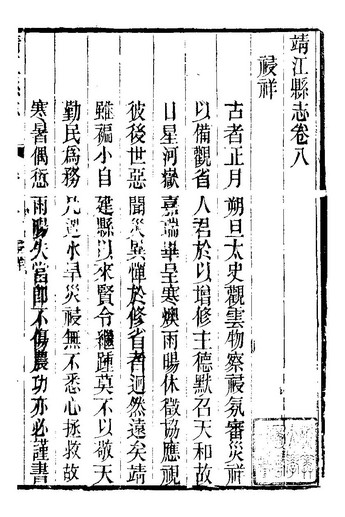 靖江縣志卷八
祲祥
古者正月朔旦太史觀雲物察祲氛審災祥
以備觀省人君於以增修主德默召天和故
日星河嶽嘉瑞畢呈寒燠雨暘休徵協應視
彼後世惡聞災異憚於修省者迥然遠矣靖
雖褊小自建縣以來賢令繼踵莫不以敬天
勤民爲務凡遇水旱災祲無不悉心拯救故
寒暑偶愆雨暘失當卽不傷農功亦必謹書